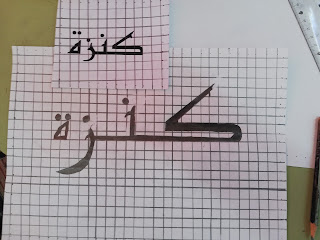 كنزة
كنزة